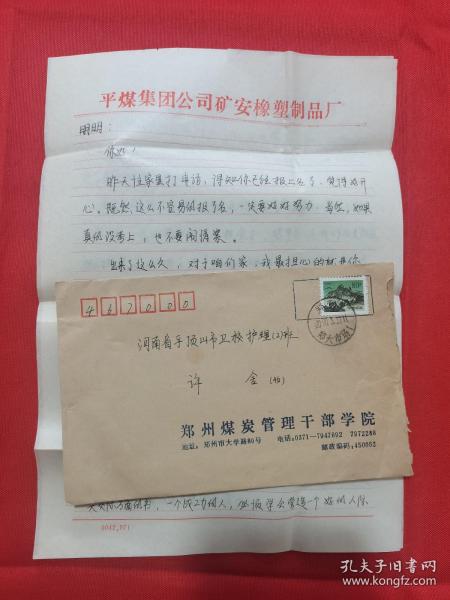 平煤集团公司矿安橡塑制品厂
明明:
你好!
昨天往家里打电话,得知你已经报上名了,觉得好开
心。既然这么不容易的报了名,一定要好好努力。当然,如果
真的没考上,也不要闹情绪。
出来了这么久,对于咱们家,我最担心的就是你
467000
河南省平顶山市卫校护理(2)班
许 金(收)
郑州煤炭管理干部学院
地址:郑州市大学路80号 电话:0371-7947692 7972288
邮政编码:450052
一个成功的人,
孔夫子旧书网
book.kongfz.com